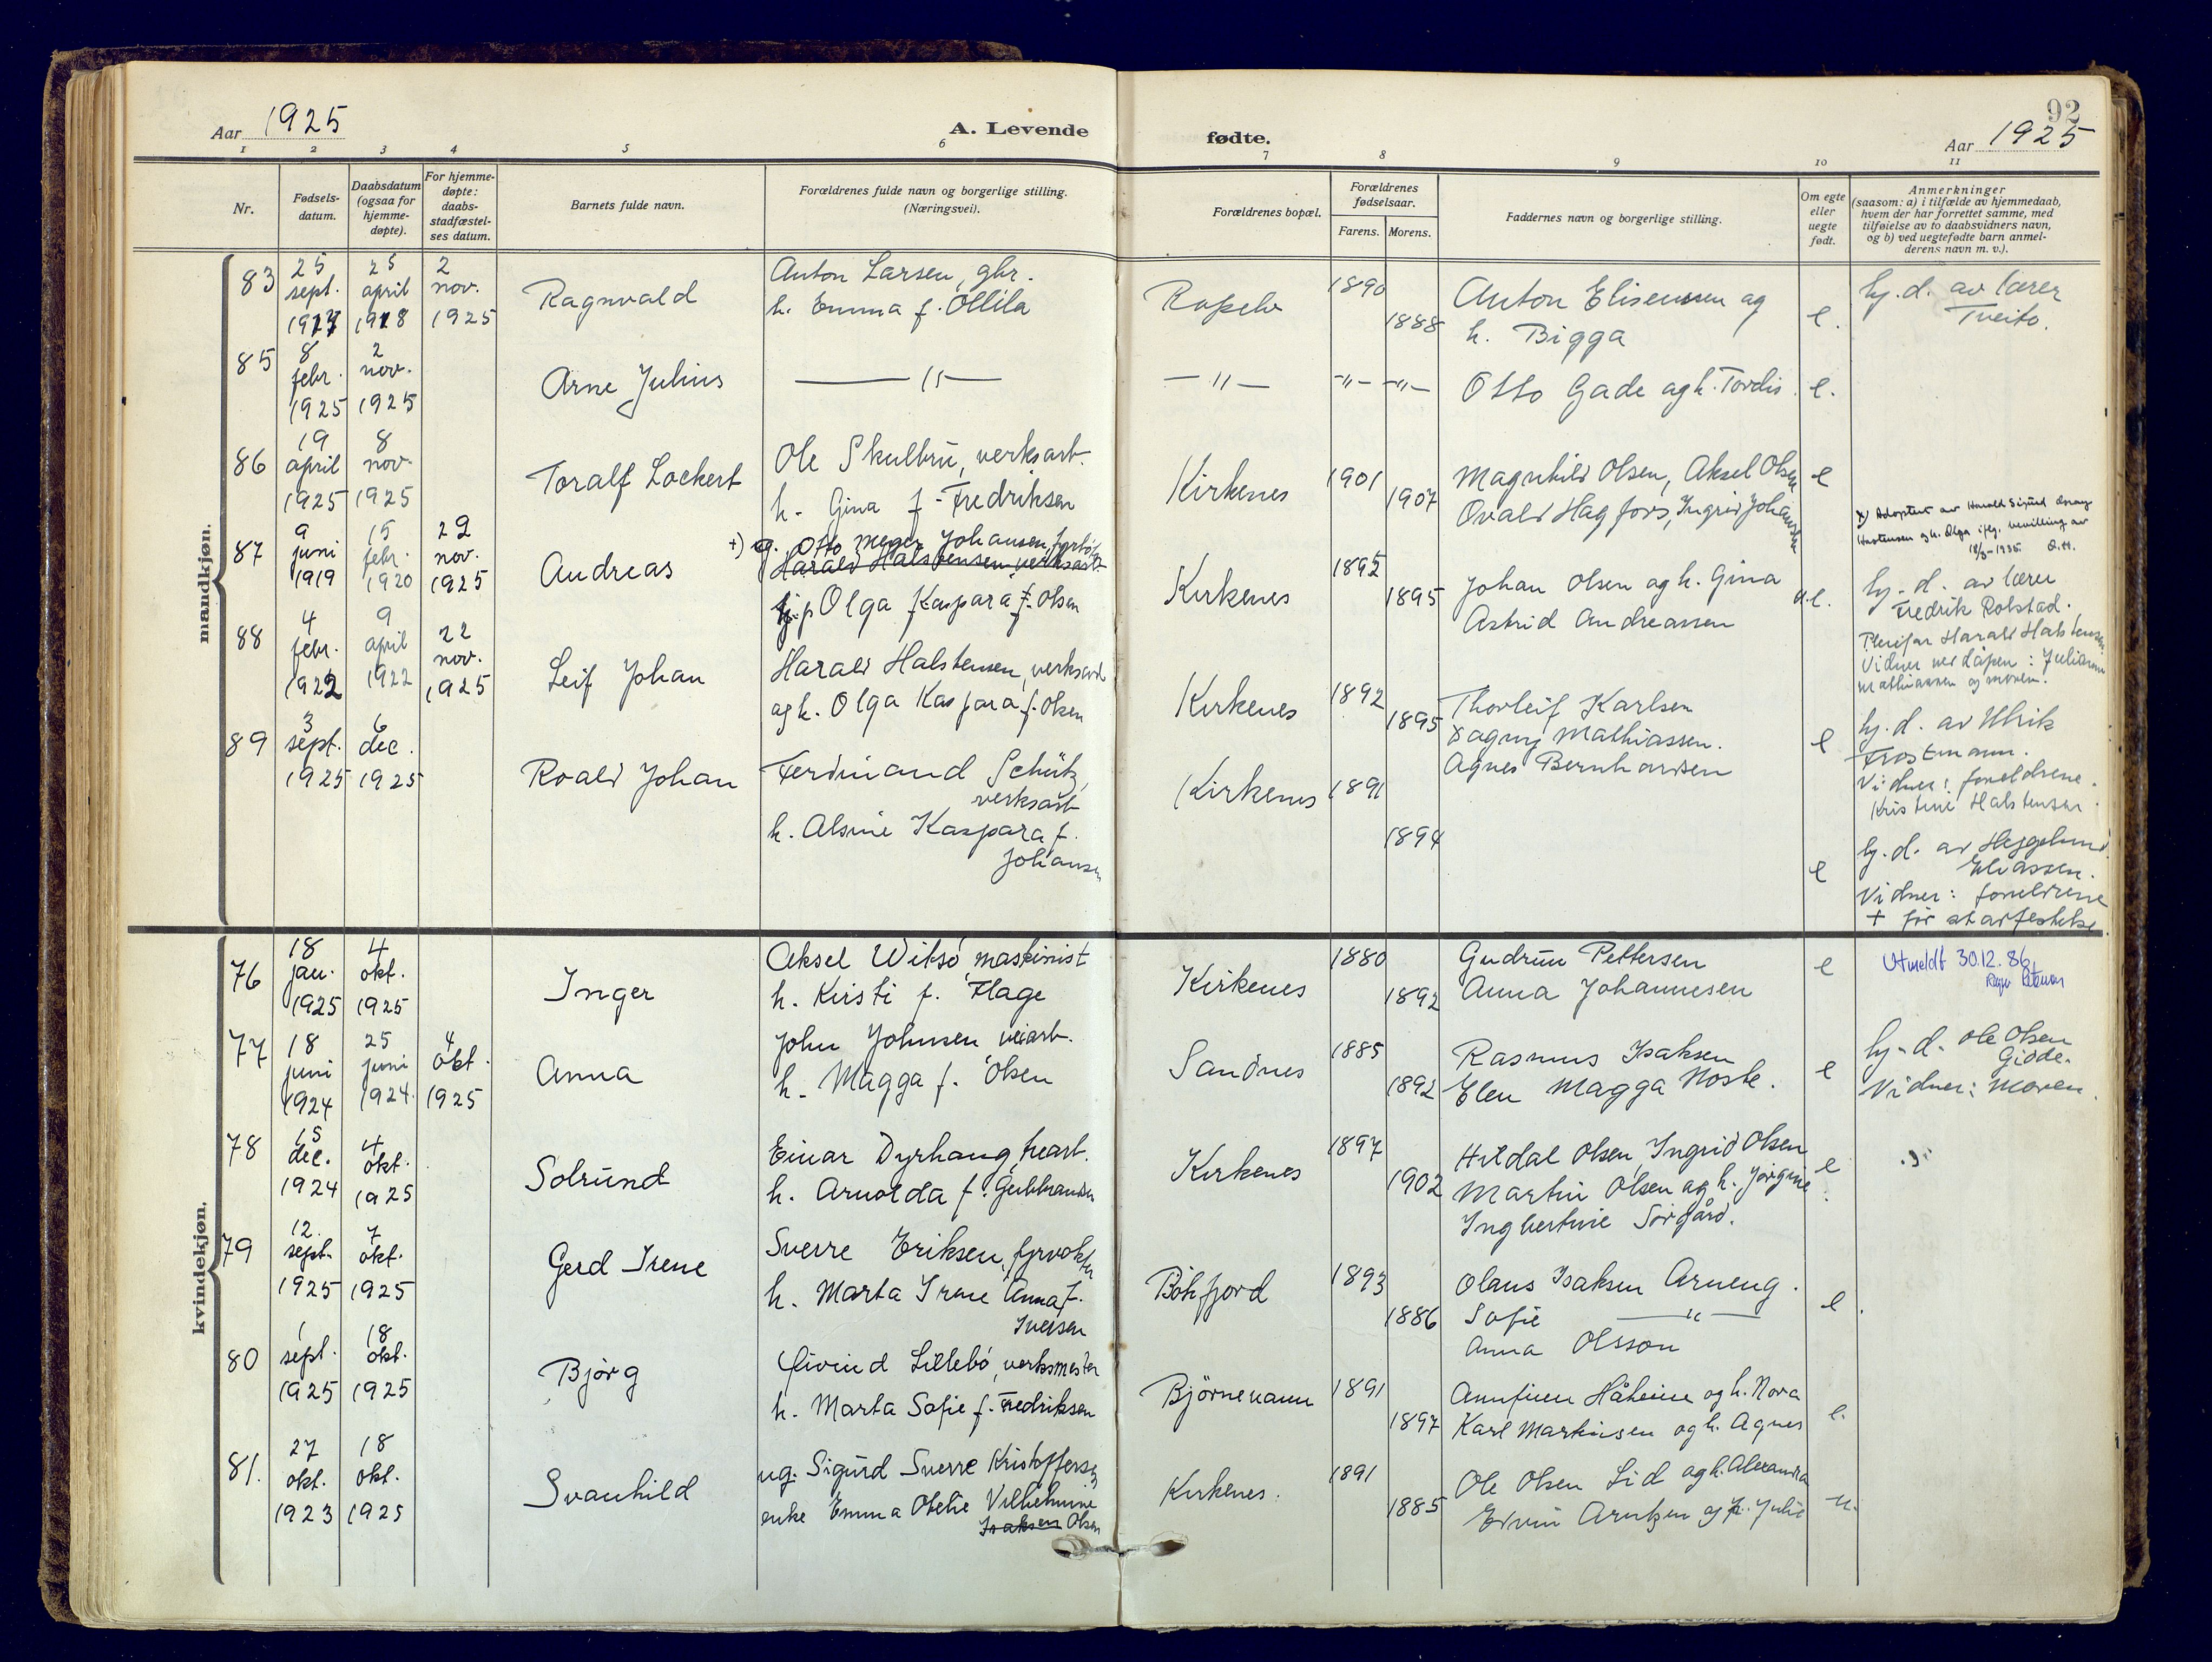 92
Aar 1925
A. Levende
fødte.
Aar 1925
1 2 3 4 5 6 7 8 9 10 11
Nr.
Fødsels-
datum.
Daabsdatum
(ogsaa for
hjemme-
døpte).
For hjemme-
døpte:
daabs-
stadfæstel-
ses datum.
Barnets fulde navn.
Forældrenes fulde navn og borgerlige stilling.
(Næringsvei).
Forældrenes bopæl.
Forældrenes
fødselsaar.
Farens. Morens.
Faddernes navn og borgerlige stilling.
Om egte
eller
uegte
født.
Anmerkninger
(saasom: a) i tilfælde av hjemmedaab,
hvem der har forrettet samme, med
tilføielse av to daabsvidners navn,
og b) ved uegtefødte barn anmel-
derens navn m. v.).
mandkjøn.
83
25
sept.
1917
25
april
1918
2
nov.
1925
Ragnvald
Anton Larsen, gbr.
h. Emma f. Ollila
1890
1888
Anton Eliseussen og
h. Bigga
e.
hj. d. av lærer
Tveito.
85
8
febr.
1925
2
nov.
1925
Arne Julius
— " —
— " —
-"- -"-
Otto Gade og h. Tordis
e.
86
19
april
1925
8
nov.
1925
Toralf Lockert
Ole Skulbru, verksarb.
h. Gina f. Fredriksen
Kirkenes
1901
1907
Magnhild Olsen, Aksel Olsen
Ovald Hagfors, Ingrid Johansen
e
87
9
juni
1919
15
febr.
1920
29
nov.
1925
Andreas
+) Otto Meyer Johansen, fyrbøter
Harald Halstensen, verksarb.
Olga Kaspara f. Olsen
Kirkenes
1895
1895
Johan Olsen og h. Gina
Astrid Andreassen
u.e.
x) Adoptert av Harald Sigurd
Halstensen og h. Olga ifg. bevilling av
hj. d. av lærer
Fredrik Rolstad.
Pleiefar Harald Halstensen
Vidner ved dåpen: Julianne
Mathiassen og moren.
88
4
febr.
1922
9
april
1922
22
nov.
1925
Leif Johan
Harald Halstensen, verksarb
og h. Olga Kaspara f. Olsen
Kirkenes
1892
1895
Thorleif Karlsen
Dagny Mathiassen.
Agnes Bernhardsen
e
hj. d. av Ulrik
Frostmann.
Vidner: foreldrene.
Kristine Halstensen
89
3
sept.
1925
6
dec.
1925
Roald Johan
Ferdinand Schütz,
verksarb
h. Alsine Kaspara f.
Johansen
Kirkenes
1891
1894
e
hj. d. av Heggelund
Eliassen.
Vidner: foreldrene
+ før stadfestelse.
kvindekjøn.
76
18
jan.
1925
4
okt.
1925
Inger
Aksel Witsø, maskinist
h. Kirsti f. Flage
Kirkenes
1880
1892
Gudrun Pettersen
Anna Johannesen
e
Utmeldt 30.12.86
77
18
juni
1924
25
juni
1924
4
okt.
1925
Anna
John Johnsen veiarb.
h. Magga f. Olsen
Sandnes
1885
1892
Rasmus Isaksen
Elen Magga Noste.
e
hj. d. Ole Olsen
Vidner: Moren
78
15
dec.
1924
4
okt.
1925
Solrund
Einar Dyrhaug
h. Arnolda f. Gulbransen
Kirkenes
1897
1902
Hildal Olsen, Ingrid Olsen
Martin Olsen og h. Jørgine
Ingbertine Sørgård.
e
79
12.
sept.
1925
7
okt.
1925
Gerd Irene
Sverre Eriksen, fyrvokter
h. Marta Irene Anna f.
Iversen
Bökfjord
1893
1886
Olaus Isaksen Arneng.
Sofie — " —
Anna Olsson
e.
80
1
sept.
1925
18
okt.
1925
Bjørg
Eivind Lillebø, verksmester
h. Marta Sofie f. Fredriksen
Björnevann
1891
1897
Annfinn Håheim og h. Nora
Karl Martinsen og h. Agnes
e.
81.
27
okt.
1923
18
okt.
1925
Svanhild
ug. Sigurd Sverre Kristoffersen
enke Emma Otelie Vilhelmine
Isaksen Olsen
Kirkenes.
1891
1885
Ole Olsen Lid og h. Alexandra
Ervin Arntzen og h. Julie
u.